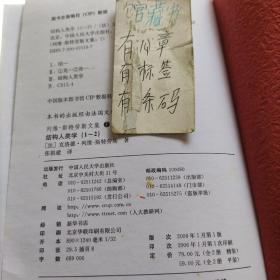 馆藏书
有印章
有标签
有条码
图书在版编目(CIP)数据
结构人类学
中国人民大学出版社
Ⅰ.结…
Ⅲ.结构人类学
Ⅳ.C912.4
中国版本图书馆CIP数据核
本书的出版经由法国文
列维-斯特劳斯文集
结构人类学(1~2)
[法]克洛德·列维-斯特劳斯
张祖建 译
出版发行 中国人民大学出版社
社址 北京中关村大街31号
邮政编码 100080
电话 010-62511242(总编室)
010-62511239(出版部)
010-82501766(邮购部)
010-62514148(门市部)
010-62515195(发行公司)
010-62515275(盗版举报)
网址 http://www.crup.com.cn
http://www.ttrnet.com(人大教研网)
经销 新华书店
印刷 北京华联印刷有限公司
开本 890×1240毫米 1/32
版次 2006年1月第1版
印张 29.5 插页8
印次 2006年1月第1次印刷
字数 689 000
定价 79.00元(全2册)精装
59.00元(全2册)平装